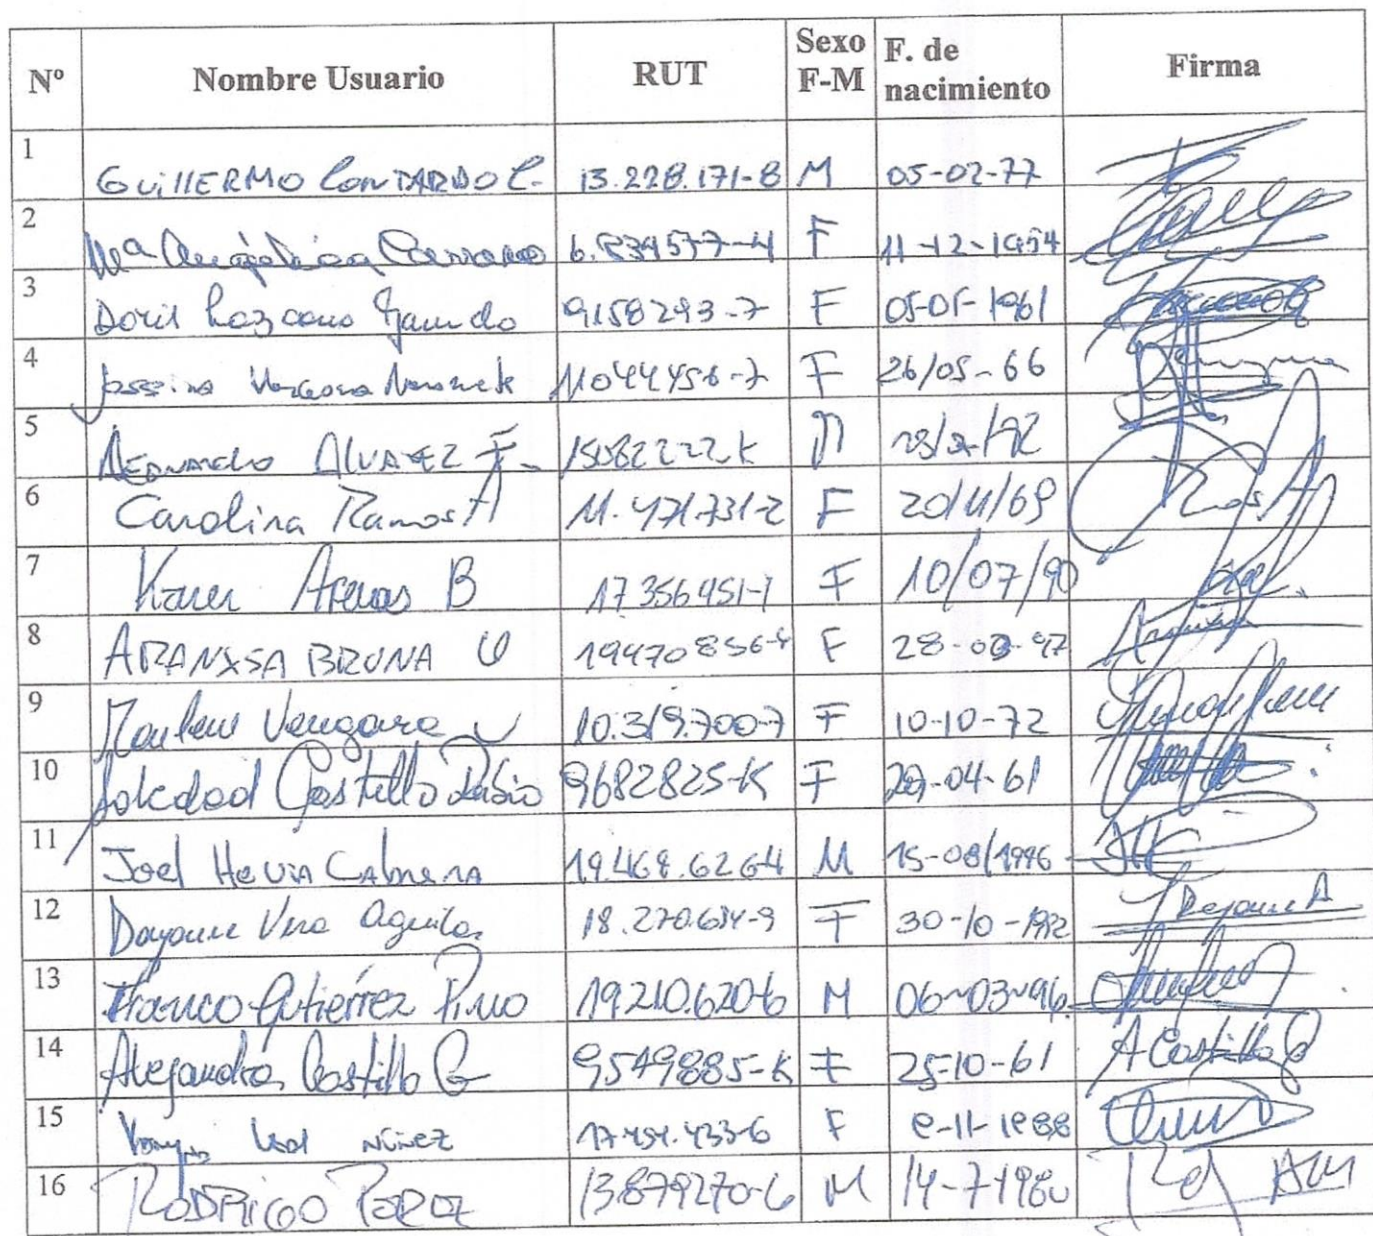 Nº Nombre Usuario RUT Sexo F-M F. de nacimiento Firma
1 GUILLERMO CONTARDO C. 13.228.171-8 M 05-02-77
2 Mª Angélica Carrasco 6.834577-4 F 11-12-1954
3 Doris Lazcano Garrido 9158293-7 F 05-05-1961
4 Vergara 11044456-7 F 26/05-66
5 ALVAREZ F. 15082222K M
6 Carolina Ramos A 11.471.731-2 F 20/11/69 Ramos A
7 Karen Arenas B 17356951-1 F 10/07/90
8 ARANXSA BRUNA V 19470856-4 F 28-02-97
9 Vergara V 10.319.700-7 F 10-10-72
10 Soledad Castillo Rubio 9682825-K F 29-04-61
11 Joel Hevia Cabrera 19.468.626-4 M 15-08/1996
12 Dayanne Vera Aguilar 18.270.634-9 F 30-10-1992 Dayanne A
13 Franco Gutiérrez Pino 19.210.620-6 M 06-03-96
14 Alejandra Castillo G 9549885-K F 25-10-61 A Castillo G
15 Leal Núñez 17.454.433-6 F 8-11-1988
16 RODRIGO PEREZ 13.879270-6 M 14-7-1980